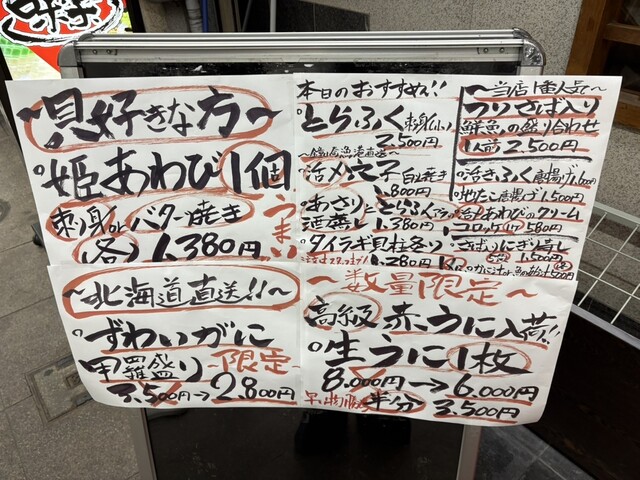 ~貝好きな方~
姫あわび1個
刺身orバター焼き
各1,380円
うまい
本日のおすすめ!!
とらふく刺身
2,500円
活〆穴子白焼き
1,800円
あさり
酒蒸し 1,380円
タイラギ貝柱各り
1,280円
~当店1番人気~
つりさば入り
鮮魚の盛り合わせ
1人前2,500円
活きふく唐揚げ1,600円
地たこ唐揚げ1,500円
あわびのクリーム
コロッケ1ケ580円
さばいにぎり寿し
1,500円
~北海道直送!!~
ずわいがに
甲羅盛り~限定~
3,500円→2,800円
~数量限定~
高級赤うに入荷!!
生うに1枚
8,000円→6,000円
早い物勝ち 半分 3,500円